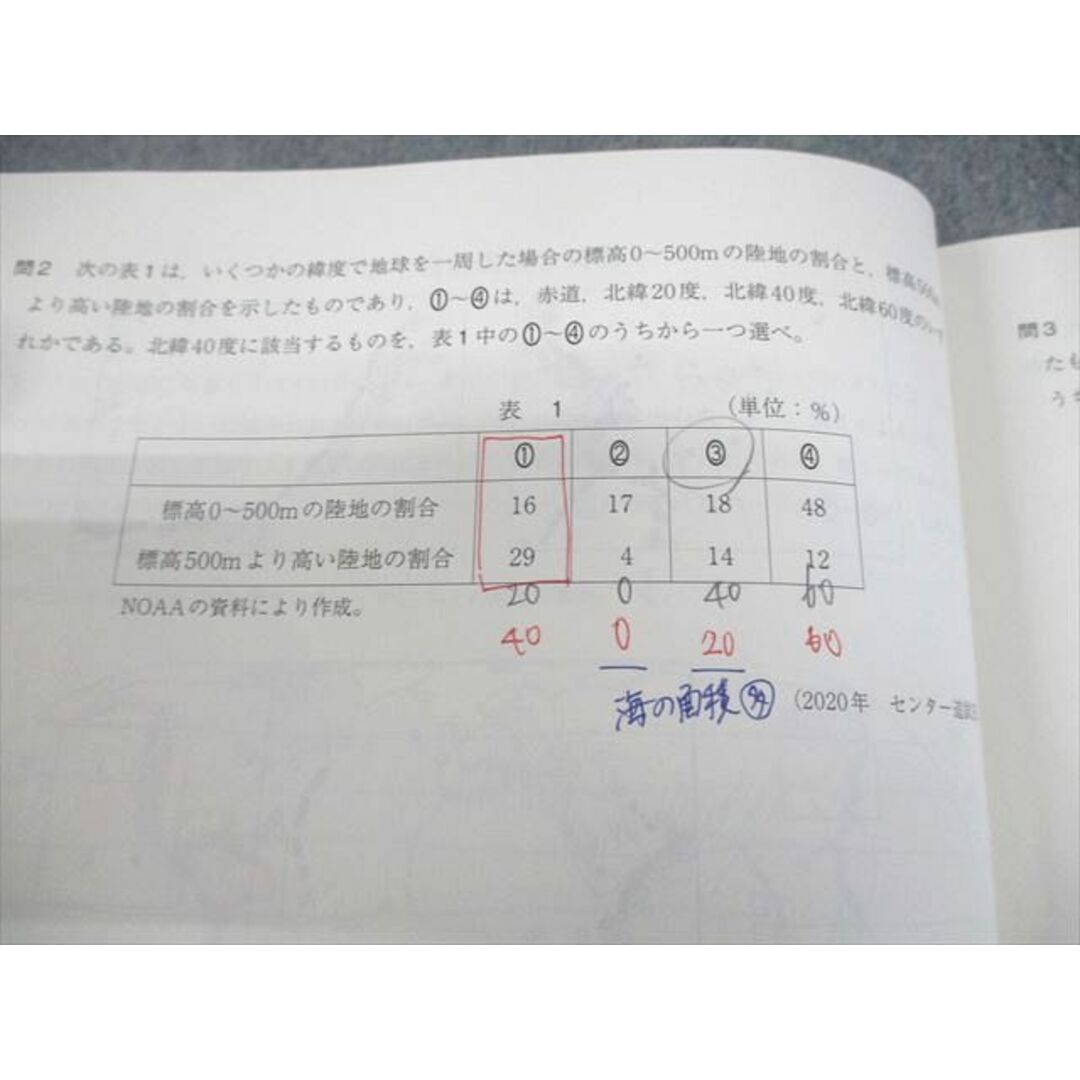 問2 次の表1は，いくつかの緯度で地球を一周した場合の標高0〜500mの陸地の割合と，標高500m
より高い陸地の割合を示したものであり，①〜④は，赤道，北緯20度，北緯40度，北緯60度のい
れかである。北緯40度に該当するものを，表1中の①〜④のうちから一つ選べ。
表 1 (単位：%)
① ② ③ ④
標高0〜500mの陸地の割合 16 17 18 48
標高500mより高い陸地の割合 29 4 14 12
NOAAの資料により作成。
20 0 40 60
40 0 20 60
海の面積
(2020年 センター追試
問3
たも
うち